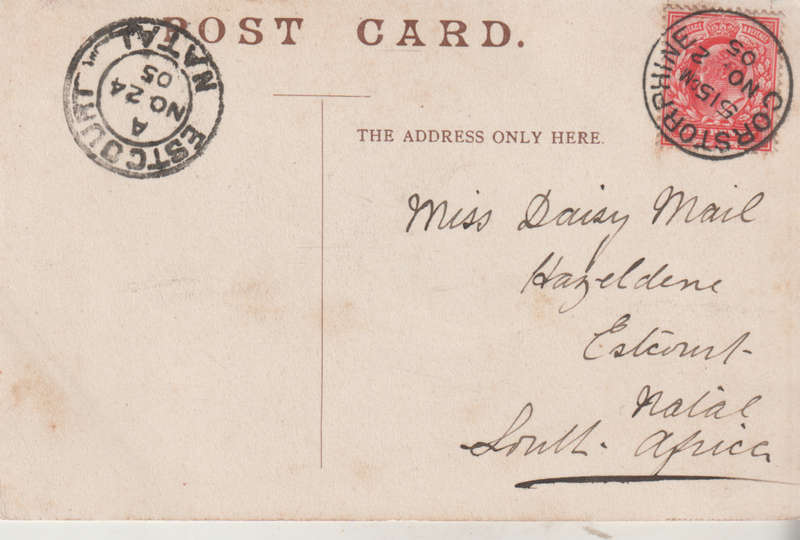 POST CARD.
ESTCOURT NATAL
A
NO 24
05
CORSTORPHINE
5 15 PM
NO 2
05
THE ADDRESS ONLY HERE.
Miss Daisy Mail
Hazeldene
Estcourt
Natal
South Africa